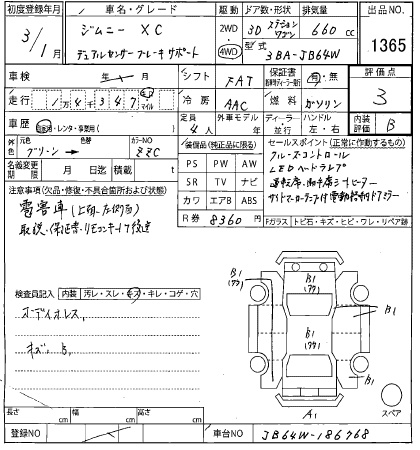 初度登録年月 車名・グレード 駆動 ドア数・形状 排気量 出品NO.
3/1月 ジムニー XC 2WD 4WD 3D ステーションワゴン 660cc 1365
デュアルセンサーブレーキサポート 型式 3BA-JB64W
車検 年 月 シフト FAT 保証書 有・無 評価点
走行 1万4347 マイル 冷房 AAC 燃料 ガソリン 3
車歴 自家用・レンタ・事業用( ) 定員 4人 外車モデル 年 ディーラー・並行 ハンドル 左・右 内装 B
外装 元色 グリーン → 色替 カラーNO ZZC
装備品(純正品に限る)
名義変更期限 月 日 積載 t
PS PW AW
SR TV ナビ
カワ エアB ABS
R券 8360円
セールスポイント(正常に作動するもの)
クルーズコントロール
LEDヘッドランプ
運転席・助手席シートヒーター
サイドターンランプ付電動格納ドアミラー
Fガラス トビ石・キズ・ヒビ・ワレ・リペア跡
注意事項(欠品・修復・不具合箇所および状態)
雹害車(上面・左側面)
取説・保証書・リモコンキー1ケ後送
検査員記入 内装 汚レ・スレ・キズ・キレ・コゲ・穴
オーディオレス,
キズ, B,
B1 (アタ)
B1 (アタ)
B1 (アタ)
B1
B1
A1
スペア
長さ cm 幅 cm 高さ cm
登録NO 車台NO JB64W-186768